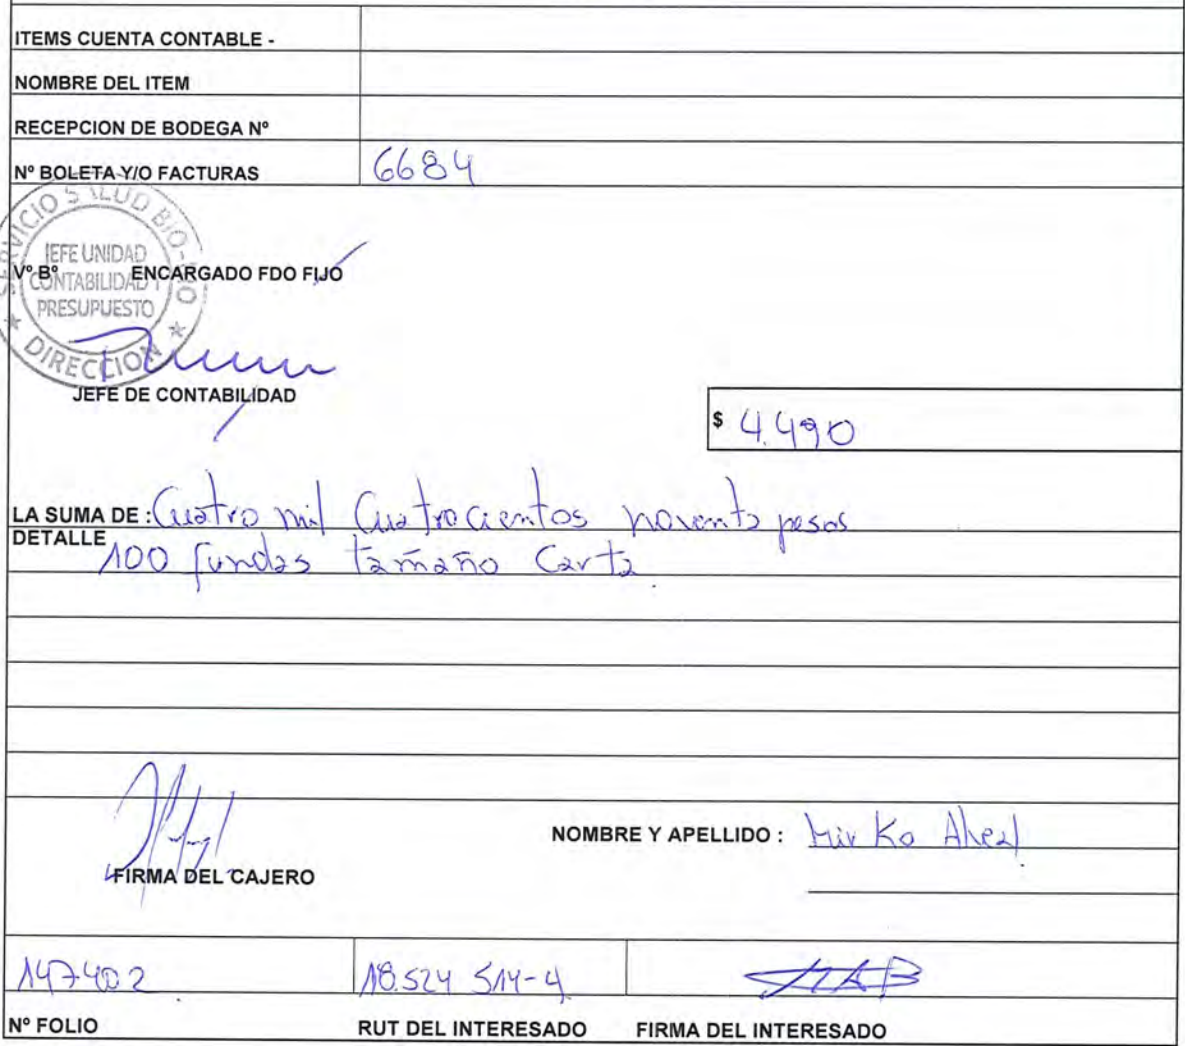 ITEMS CUENTA CONTABLE -
NOMBRE DEL ITEM
RECEPCION DE BODEGA Nº
Nº BOLETA Y/O FACTURAS 6684
SERVICIO SALUD BIO-BIO
JEFE UNIDAD
CONTABILIDAD Y
PRESUPUESTO
★ DIRECCION ★
Vº Bº ENCARGADO FDO FIJO
JEFE DE CONTABILIDAD
$ 4.490
LA SUMA DE : Cuatro mil Cuatrocientos noventa pesos
DETALLE
100 fundas tamaño Carta
NOMBRE Y APELLIDO : Mirko
FIRMA DEL CAJERO
147402 18.524 514-4
Nº FOLIO RUT DEL INTERESADO FIRMA DEL INTERESADO